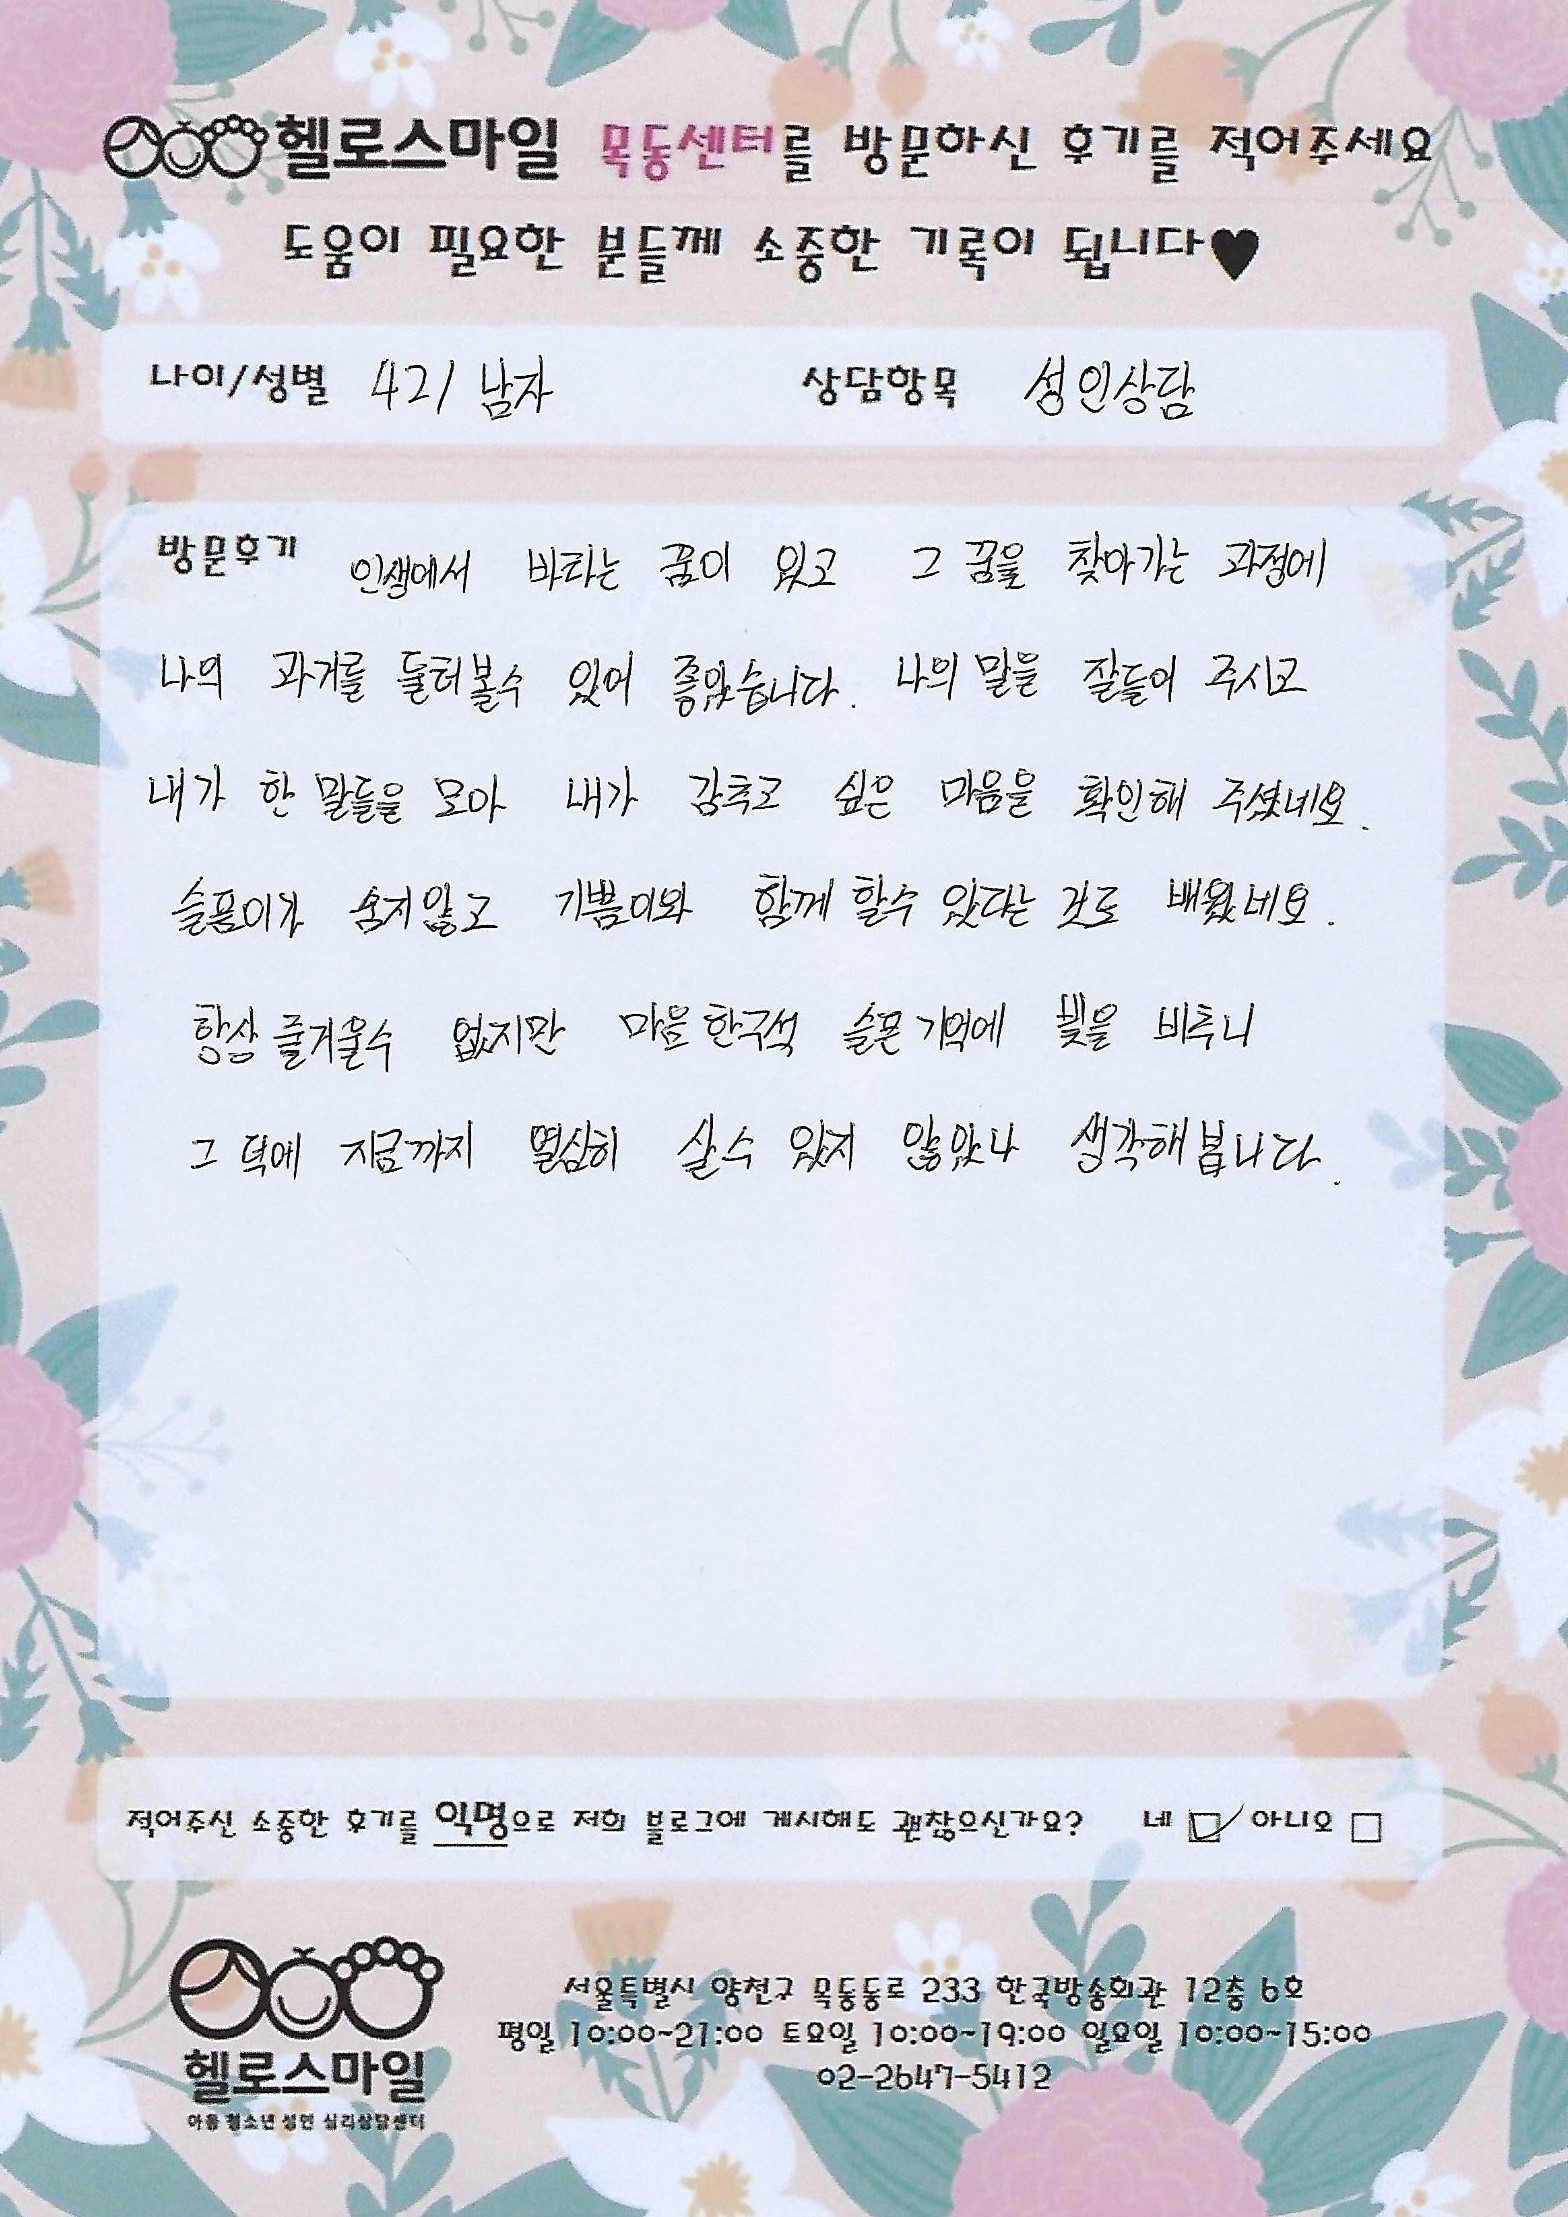 헬로스마일 목동센터를 방문하신 후기를 적어주세요
도움이 필요한 분들께 소중한 기록이 됩니다♥
나이/성별 42/ 남자 상담항목 성인상담
방문후기 인생에서 바라는 꿈이 있고 그 꿈을 찾아가는 과정에
나의 과거를 둘러볼수 있어 좋았습니다. 나의 말을 잘들어 주시고
내가 한 말들을 모아 내가 감추고 싶은 마음을 확인해 주셨네요.
슬픔이가 숨지않고 기쁨이와 함께 할수 있다는 것도 배웠네요.
항상 즐거울수 없지만 마음 한구석 슬픈 기억에 빛을 비추니
그 덕에 지금까지 열심히 살수 있지 않았나 생각해 봅니다.
적어주신 소중한 후기를 익명으로 저희 블로그에 게시해도 괜찮으신가요? 네 ☑ 아니오 □
헬로스마일
아동 청소년 성인 심리상담센터
서울특별시 양천구 목동동로 233 한국방송회관 12층 6호
평일 10:00~21:00 토요일 10:00~19:00 일요일 10:00~15:00
02-2647-5412